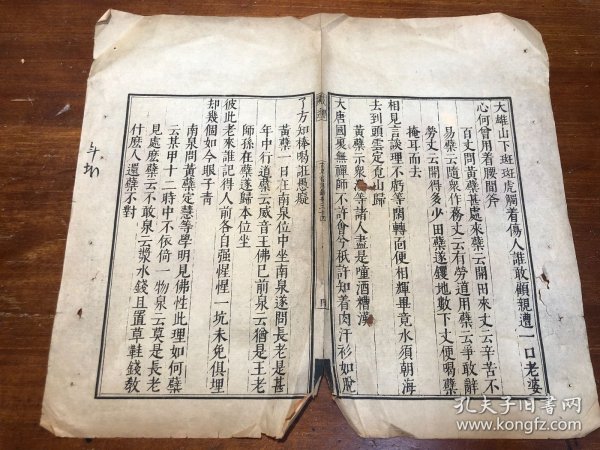 大雄山下斑斑虎觸着傷人誰敢顧親遭一口老婆
心何曾用着腰間斧
百丈問黃蘗甚處來蘗云開田來丈云辛苦不
易蘗云隨衆作務丈云有勞道用蘗云爭敢辭
勞丈云開得多少田蘗遂钁地數下丈便喝蘗
掩耳而去
相見言談理不虧等閑轉面便相輝畢竟水須朝海
去到頭雲定覓山歸
黃蘗示衆云汝等諸人盡是噇酒糟漢
大唐國裏無禪師不許會兮秖許知着肉汗衫如脫
了方知棒喝誑愚癡
黃蘗一日在南泉位中坐南泉遂問長老是甚
年中行道蘗云威音王佛已前泉云猶是王老
師孫在蘗遂歸本位坐
彼此老來誰記得人前各自强惺惺一坑未免俱埋
却幾個如今眼子靑
南泉問黃蘗定慧等學明見佛性此理如何蘗
云某甲十二時中不依倚一物泉云莫是長老
見處麽蘗云不敢泉云漿水錢且置草鞋錢敎
什麽人還蘗不對
孔夫子旧书网
www.kongfz.com